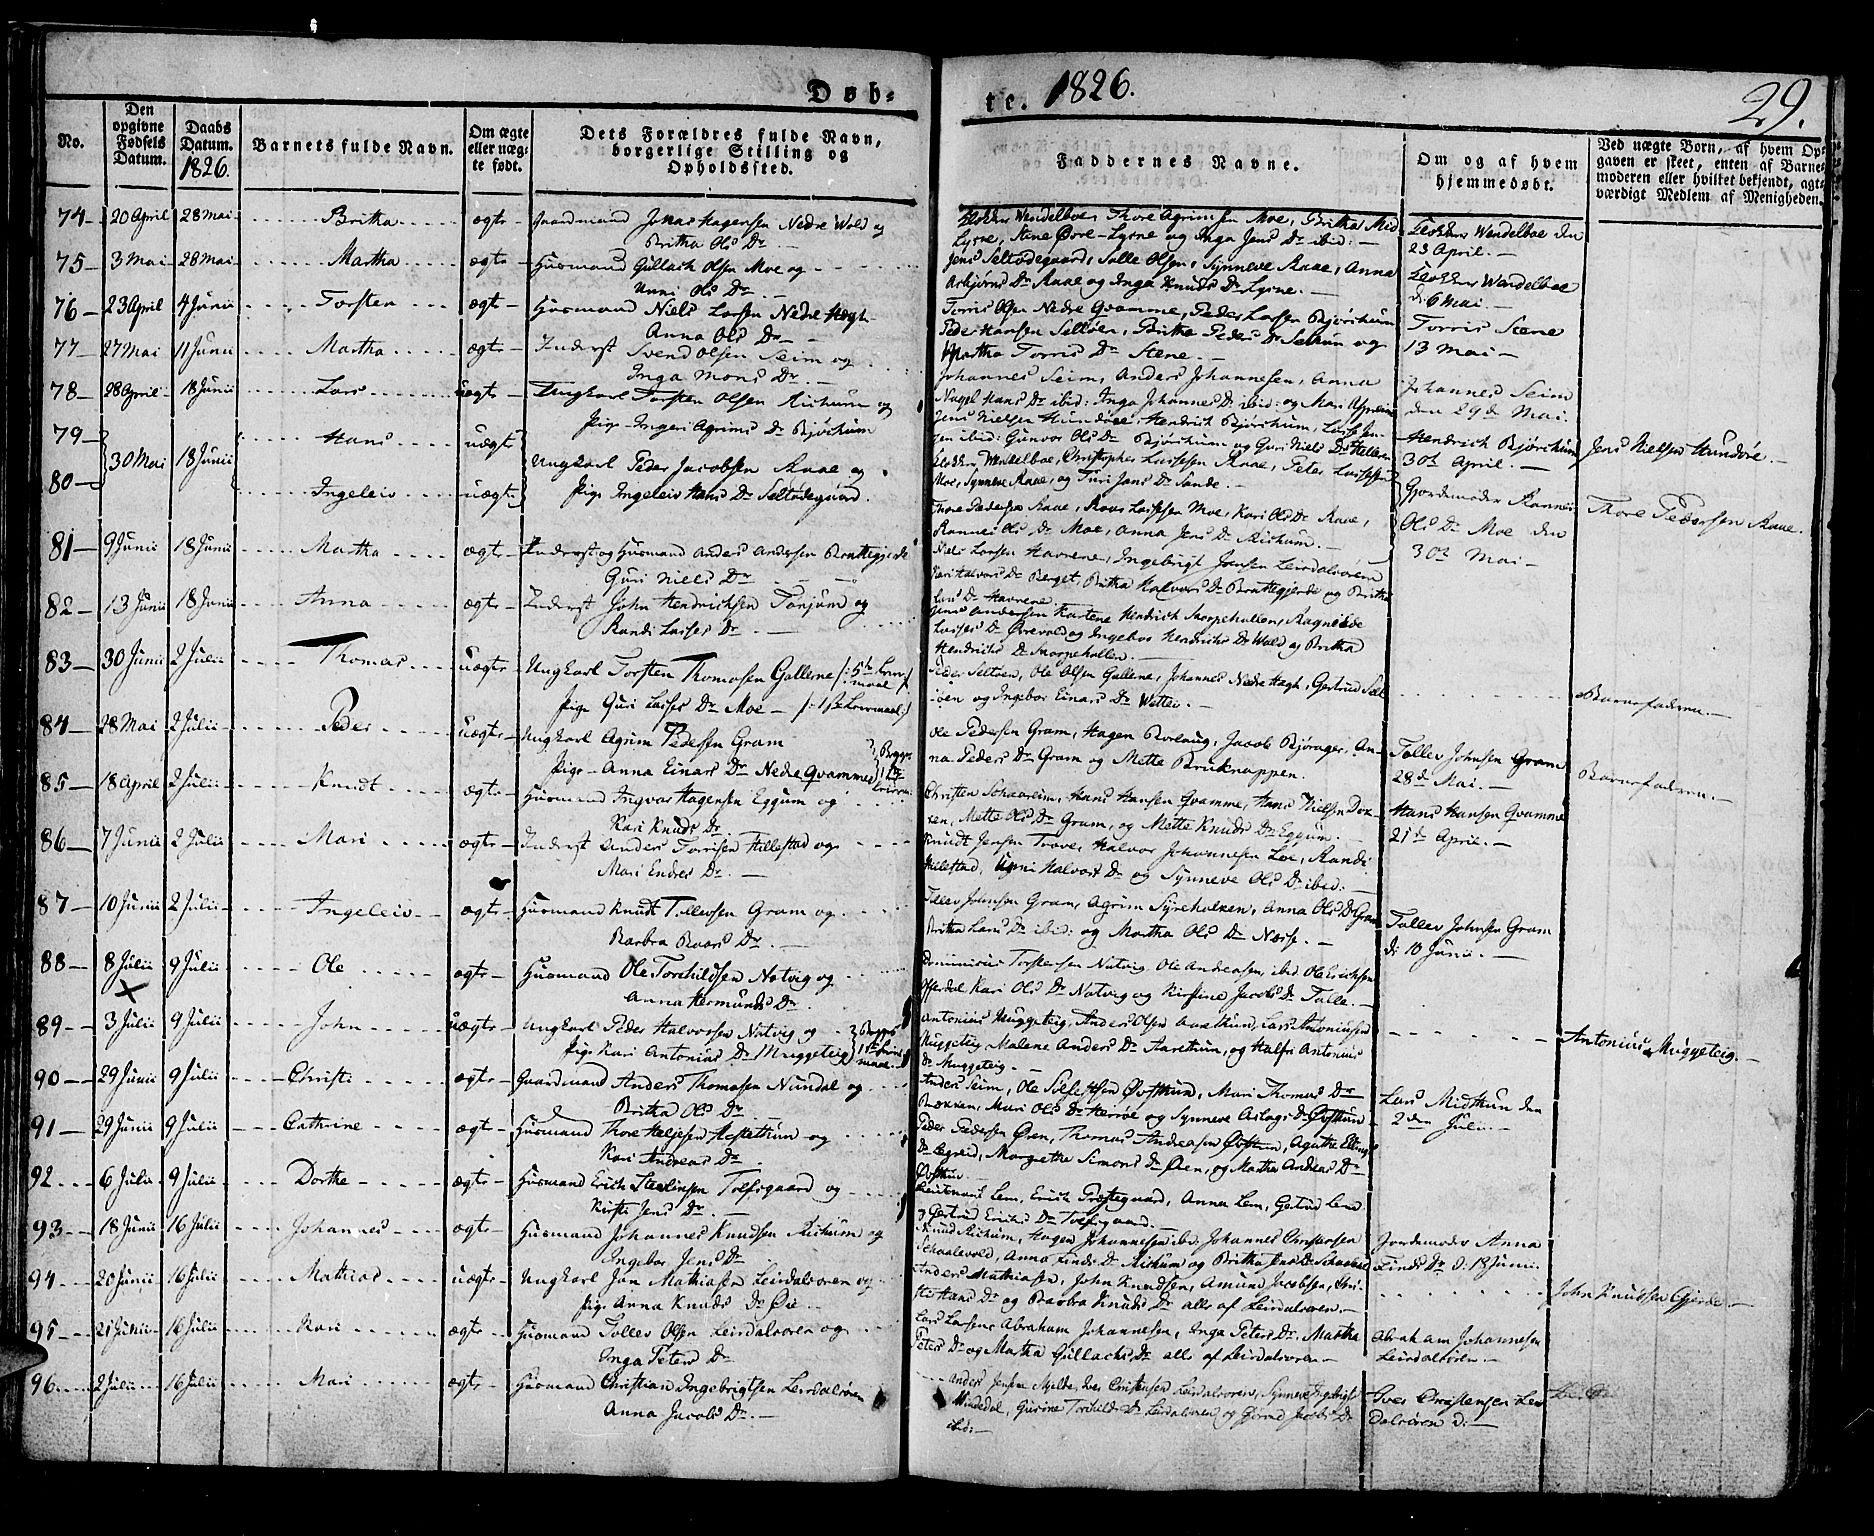 Døb-
te. 1826.
29.
No.
Den opgivne Fødsels Datum.
Daabs Datum. 1826.
Barnets fulde Navn.
Om ægte eller uægte født.
Dets Forældres fulde Navn, borgerlige Stilling og Opholdssted.
Faddernes Navne.
Om og af hvem hjemmedøbt.
Ved uægte Børn, af hvem Opgaven er skeet, enten af Barnemoderen eller hvilket bekjendt, agtværdigt Medlem af Menigheden.
74 20 April 28 Mai Britha ægte Gaardmand Jonas Hagensen Nedre Wold og
Britha Ols Dr.
Klokker Wendelboe, Thore Agrimsen Moe, Britha
Lysne, Stene Øvre-Lysne og Inga Jens Dr ibid:
Klokker Wendelboe den
23 April.
75 3 Mai 28 Mai Martha ægte Husmand Gullach Olsen Moe og
Unni Ols Dr.
Jens Seltødegaard, Salle Olsen, Synneve Aaae, Anna
Asbjørns Dr Aaae og Inga Knuds Dr Lysne.
Klokker Wendelboe
d: 6 Mai.
76 23 April 4 Junii Torsten ægte Husmand Niels Larsen Nedre Hægt
Anna Ols Dr
Torris Olsen Nedre Qvamme, Peder Larsen Bjørchum
Peder Hansen Seltøen, Britha Peders Dr Seltun og
Martha Torris Dr Stene.
Torris Stene
13 Mai
77 27 Mai 11 Junii Martha ægte Inderst Svend Olsen Seim og
Inga Mons Dr.
Johannes Seim, Anders Johannesen, Anna
Hans Dr ibid: Inga Johannes Dr ibid: og Mari
Johannes Seim
den 29de Mai.
78 28 April 18 Junii Lars uægte Ungkarl Torsten Olsen Rikum og
Pige Ingeri Agrims Dr Bjørkum
Jens Nielsen Hundøie, Hendrich Bjørchum, Lasse Jensen
ibid: Gunvor Ols Dr Bjørchum og Guri Niels Dr Hellem
Hendrich Bjørchum
30te April.
Jens Nielsen Hundøie.
79 Hans uægte
80 30 Mai 18 Junii Ingeleiv uægte
Ungkarl Peder Jacobsen Aaae og
Pige Ingeleiv Hans Dr Seltødegaard.
Klokker Wendelboe, Christopher Lassesen Aaae, Peter Lassesen
Moe, Synneve Aaae, og Turi Jens Dr Sande.
Thore Pedersen Aaae, Roar Lassesen Moe, Kari Ols Dr Aaae,
Rannei Ols Dr Moe, Anna Jens Dr Rikum.
Gjordemoder Rannei
Ols Dr Moe den
30te Mai
Thore Pedersen Aaae.
81 9 Junii 18 Junii Martha ægte Inderst og Husmand Anders Andersen Brattegjerde
Guri Niels Dr
Niels Larsen Havrene, Ingebrigt Joensen Leirdalsøren
Kari Halvors Dr Berget, Britha Halvors Dr Brattegjerde og Britha
Lars Dr Havrene
82 13 Junii 18 Junii Anna ægte Inderst John Hendrichsen Tonjum og
Randi Lasses Dr.
Jens Andersen Hendrich Skorpehollen, Ragnilde
Lasses Dr Øvrevold og Ingebor Hendrichs Dr Wold og Britha
Hendrichs Dr Skorpehollen.
83 30 Junii 2 Julii Thomas uægte Ungkarl Torsten Thomasen Gallerne /: 5te Leiermaal :/
Pige Guri Lasses Dr Moe /: 1ste Leiermaal :/
Peder Seltøen, Ole Olsen Gallene, Johannes Nedre Hægh, Gertrud Seltøen
og Ingebor Einars Dr Wettei.
Barnefaderen.
84 28 Mai 2 Julii Peder uægte Ungkarl Agrim Pedersen Gram
Pige Anna Einars Dr Nedre Qvamme
Ole Pedersen Gram, Hagen Borlaug, Jacob Bjørager, Anna
Peders Dr Gram og Mette Bruknappen.
Tollev Johnsen Gram
28de Mai.
Barnefaderen.
85 18 April 2 Julii Knudt ægte Husmand Ingvar Hagensen Eggum og
Kari Knuds Dr
Christen Schaareim, Hans Hansen Qvamme, Hans Nielsen
Mette Ols Dr Gram, og Mette Knuds Dr Eggum.
Hans Hansen Qvamme
21de April.
86 7 Junii 2 Julii Mari ægte Inderst Anders Torrisen Hillestad og
Mari Endres Dr.
Knudt Jensen Trove, Halvor Johannesen Loe, Randi
Hillestad, Unni Halvors Dr og Synneve Ols Dr ibid:
87 10 Junii 2 Julii Ingeleiv ægte Husmand Knudt Tollevsen Gram og
Barbra Roars Dr.
Tollev Johnsen Gram, Agrim Synneholten, Anna Ols Dr Gram
Britha Lars Dr ibid: og Martha Ols Dr Næsse.
Tollev Johnsen Gram
d: 10 Junii.
88 8 Julii 9 Julii Ole ægte Husmand Ole Torchildsen Natvig og
Anna Hermunds Dr
Dominicus Torstensen Natvig, Ole Andreasen, ibid, Ole Erichsen
Offerdal Kari Ols Dr Natvig og Kirstine Jacobs Dr Talle.
89 3 Julii 9 Julii John uægte Ungkarl Peder Halvorsen Natvig og
Pige Kari Antonius Dr Muggeteig
Antonius Muggeteig, Anders Olsen Aarethun, Lars Antoniusen
Muggeteig Malene Anders Dr Aarethun, og Halfri Antonius
Dr Muggeteig.
Antonius Muggeteig.
90 29 Junii 9 Julii Christi ægte Gaardmand Anders Thomasen Nundal og
Britha Ols Dr
Anders Seim, Ole Solfestsen Øvsthun, Mari Thomas Dr
Bækken, Mari Ols Dr Herrøe og Synneve Aslags Dr Øvsthun
Lars Midthun den
2den Julii.
91 29 Junii 9 Julii Cathrine ægte Husmand Thore Heljesen Hestethun og
Kari Andreas Dr
Peder Pedersen Øren, Thomas Andreasen Øvsthun, Agathe Ellings
Dr Legreid, Margrethe Simons Dr Øren, og Martha Andreas Dr
Øvsthun
92 6 Julii 9 Julii Dorthe ægte Husmand Erich Steelinsen Tofsgaard og
Kirsti Jens Dr.
Leutenant Lem, Erich Præstegaard, Anna Lem, Gertrud Lem
og Gertrud Erichs Dr Tofsgaard.
93 18 Junii 16 Julii Johannes ægte Husmand Johannes Knudsen Rikum og
Ingebor Jens Dr
Knud Rikum, Hagen Johannesen ibid, Johannes Christensen
Schaalevold, Anna Linds Dr Rikum og Britha Jens Dr
Jordemoder Anna
Linds Dr d: 18 Junii.
94 20 Junii 16 Julii Mathias uægte Ungkarl Jan Mathiasen Leirdalsøren og
Pige Anna Knuds Dr Øie
Anders Mathiasen, John Knudsen, Amund Jacobsen,
Hans Dr og Barbra Knuds Dr alle af Leirdalsøren.
John Knudsen Gjerde.
95 21 Junii 16 Julii Kari ægte Husmand Tollev Olsen Leirdalsøren og
Inga Peters Dr
Lars Larsen, Abraham Johannesen, Inga Peters Dr. Martha
Peters Dr og Martha Gullachs Dr alle af Leirdalsøren
Abraham Johannesen
Leirdalsøren.
96 2 Julii 16 Julii Mari ægte Husmand Christian Ingebrigtsen Leirdalsøren
Anna Jacobs Dr.
Anders Jensen Mjelde, Iver Christensen Leirdalsøren, Synneve Ingebrigts
Gurine Torchilds Dr Leirdalsøren og Jacobs Dr
ibid:
Iver Christensen Leirdalsøren
d: